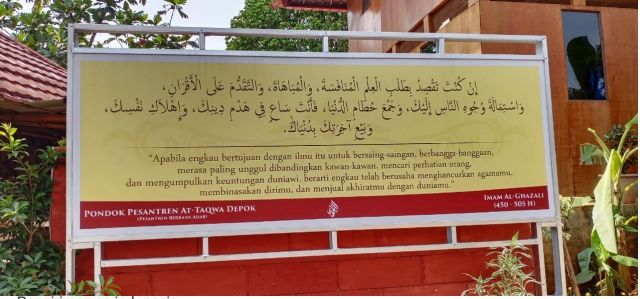 إِنْ كُنْتَ تَقْصِدُ بِطَلَبِ الْعِلْمِ الْمُنَافَسَةَ، وَالْمُبَاهَاةَ، وَالتَّقَدُّمَ عَلَى الْأَقْرَانِ،
وَاسْتِمَالَةَ وُجُوهِ النَّاسِ إِلَيْكَ، وَجَمْعَ حُطَامِ الدُّنْيَا، فَأَنْتَ سَاعٍ فِي هَدْمِ دِينِكَ، وَإِهْلَاكِ نَفْسِكَ،
وَبَيْعِ آخِرَتِكَ بِدُنْيَاكَ.
“Apabila engkau bertujuan dengan ilmu itu untuk bersaing-saingan, berbangga-banggaan,
merasa paling unggul dibandingkan kawan-kawan, mencari perhatian orang,
dan mengumpulkan keuntungan duniawi, berarti engkau telah berusaha menghancurkan agamamu,
membinasakan dirimu, dan menjual akhiratmu dengan duniamu.”
PONDOK PESANTREN AT-TAQWA DEPOK
(PESANTREN BERBASIS ADAB)
IMAM AL-GHAZALI
(450 - 505 H)